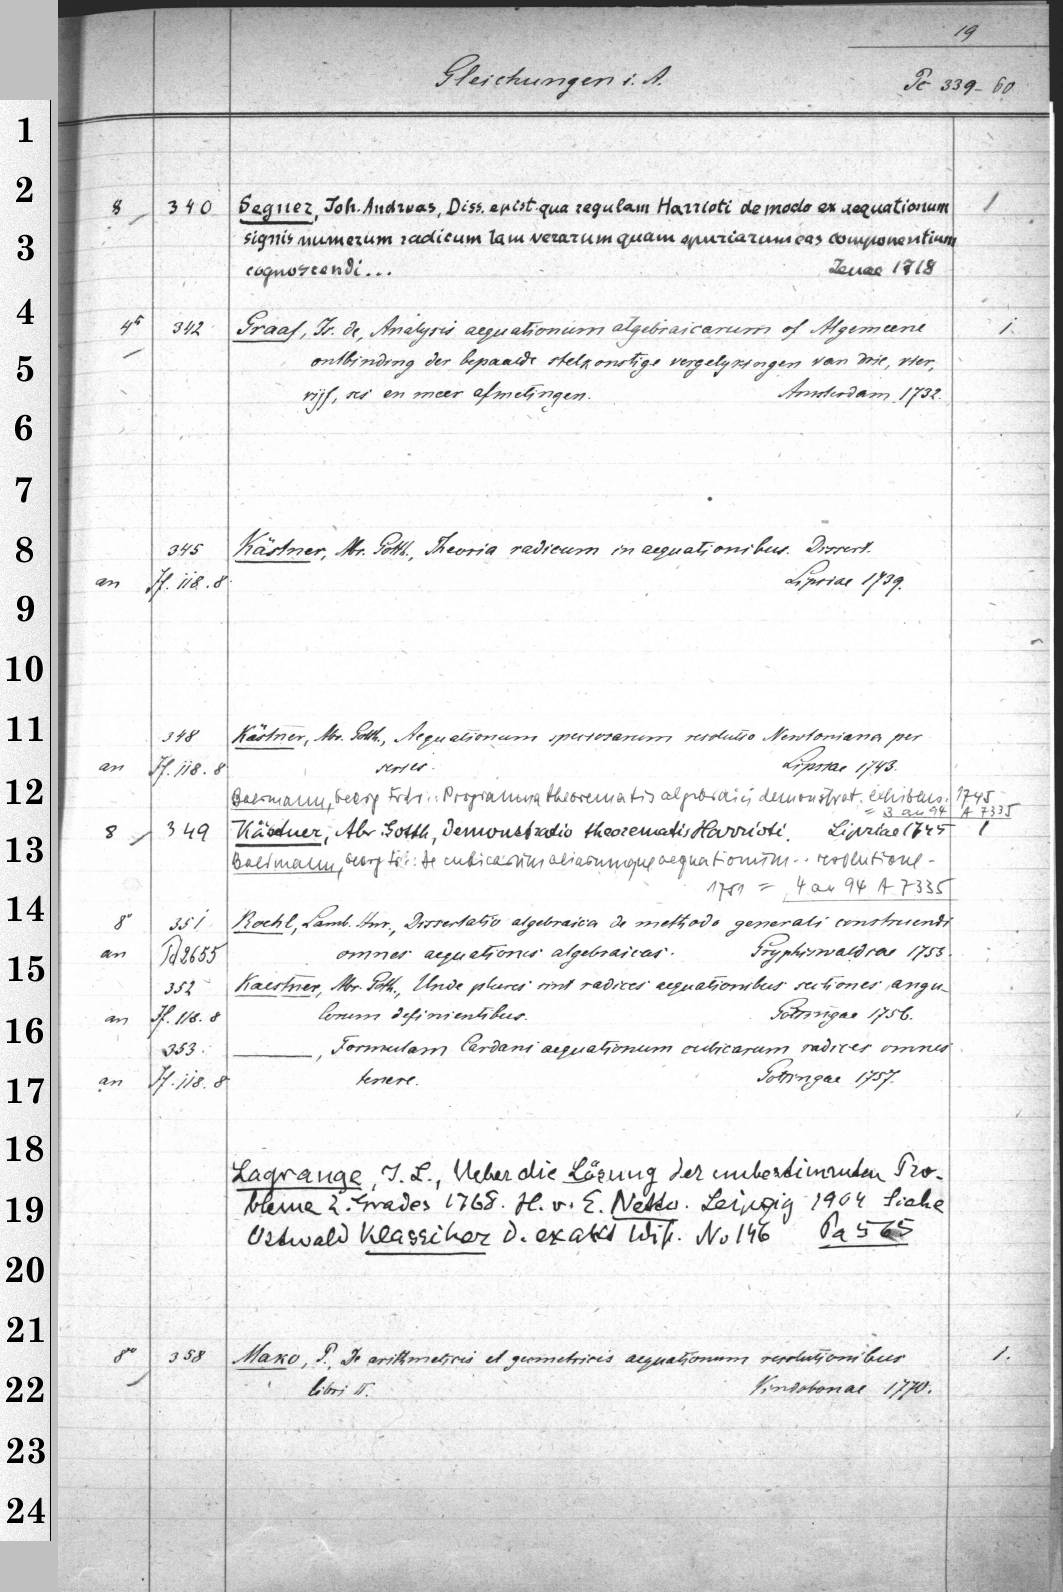 19
Gleichungen i. A. Pc 339-60
1
2
8 340 Segner, Joh. Andreas, Diss. epist. qua regulam Harrioti de modo ex aequationum 1
3
signis numerum radicum tam verarum quam spuriarum eas componentium
cognoscendi... Jenae 1718
4
4º 342 Graaf, Is. de, Analysis aequationum algebraicarum of Algemeene 1.
5
ontbinding der bepaalde stelkonstige vergelykingen van drie, vier,
vijf, ses en meer afmetingen. Amsterdam 1732.
6
7
8
345 Kästner, Abr. Gotth., Theoria radicum in aequationibus. Dissert.
an If. 118.8 Lipsiae 1739.
9
10
11
348 Kästner, Abr. Gotth., Aequationum speciosarum resolutio Newtoniana per
an If. 118.8 series. Lipsiae 1743.
12
Baermann, Georg Frdr.: Programma theorematis algebraici demonstrat. exhibens. 1745
= 3 an 94 A 7335
8 349 Kästner, Abr. Gotth, Demonstratio theorematis Harrioti. Lipsiae 1745 1
13
Baermann, Georg Fr.: De cubicarum aliarumque aequationum .. resolutione -
1751 = 4 an 94 A 7335
14
8º 351 Roehl, Lamb. Hnr., Dissertatio algebraica de methodo generali construendi
an Pd 2655 omnes aequationes algebraicas. Gryphiswaldiae 1753.
15
352 Kaestner, Abr. Gotth., Unde plures sint radices aequationibus sectiones angu-
16
an If. 118.8 lorum definientibus. Gottingae 1756.
353. ———, Formulam Cardani aequationum cubicarum radices omnes
17
an If. 118.8 tenere. Gottingae 1757.
18
Lagrange, J. L., Ueber die Lösung der unbestimmten Pro-
19
bleme 2. Grades 1768. H. v. E. Netto. Leipzig 1904 Siehe
Ostwald Klassiker d. exakt Wiss. No 146 Pa 565
20
21
8º 358 Mako, P., De arithmeticis et geometricis aequationum resolutionibus 1.
22
libri II. Vindobonae 1770.
23
24